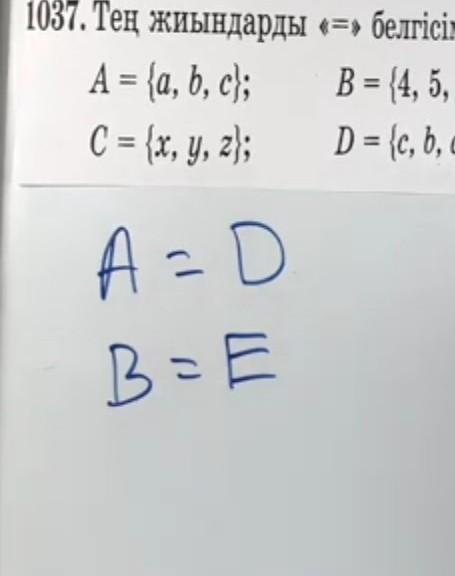 1037. Тең жиындарды «=»
A = {a, b, c}; B = {4, 5,
C = {x, y, z}; D = {c, b,
A = D
B = E